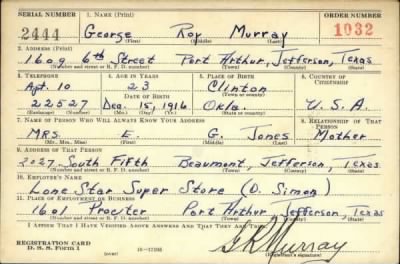 SERIAL NUMBER 1. NAME (Print) ORDER NUMBER
2444 George Roy Murray 1032
(First) (Middle) (Last)
2. ADDRESS (Print)
1609 6th Street Port Arthur, Jefferson, Texas
(Number and street or R. F. D. number) (Town) (County) (State)
3. TELEPHONE 4. AGE IN YEARS 5. PLACE OF BIRTH 6. COUNTRY OF CITIZENSHIP
Apt. 10 23 Clinton
DATE OF BIRTH (Town or county)
22527 Dec. 15, 1916 Okla. U. S. A.
7. NAME OF PERSON WHO WILL ALWAYS KNOW YOUR ADDRESS 8. RELATIONSHIP OF THAT PERSON
MRS. E. G. Jones Mother
(Mr., Mrs., Miss) (First) (Middle) (Last)
9. ADDRESS OF THAT PERSON
2027 South Fifth Beaumont, Jefferson, Texas
(Number and street or R. F. D. number) (Town) (County) (State)
10. EMPLOYER'S NAME
Lone Star Super Store (D. Simon)
11. PLACE OF EMPLOYMENT OR BUSINESS
1601 Procter Port Arthur Jefferson, Texas
(Number and street or R. F. D. number) (Town) (County) (State)
I AFFIRM THAT I HAVE VERIFIED ABOVE ANSWERS AND THAT THEY ARE TRUE.
REGISTRATION CARD
D. S. S. Form 1 G R Murray
(Registrant's signature)